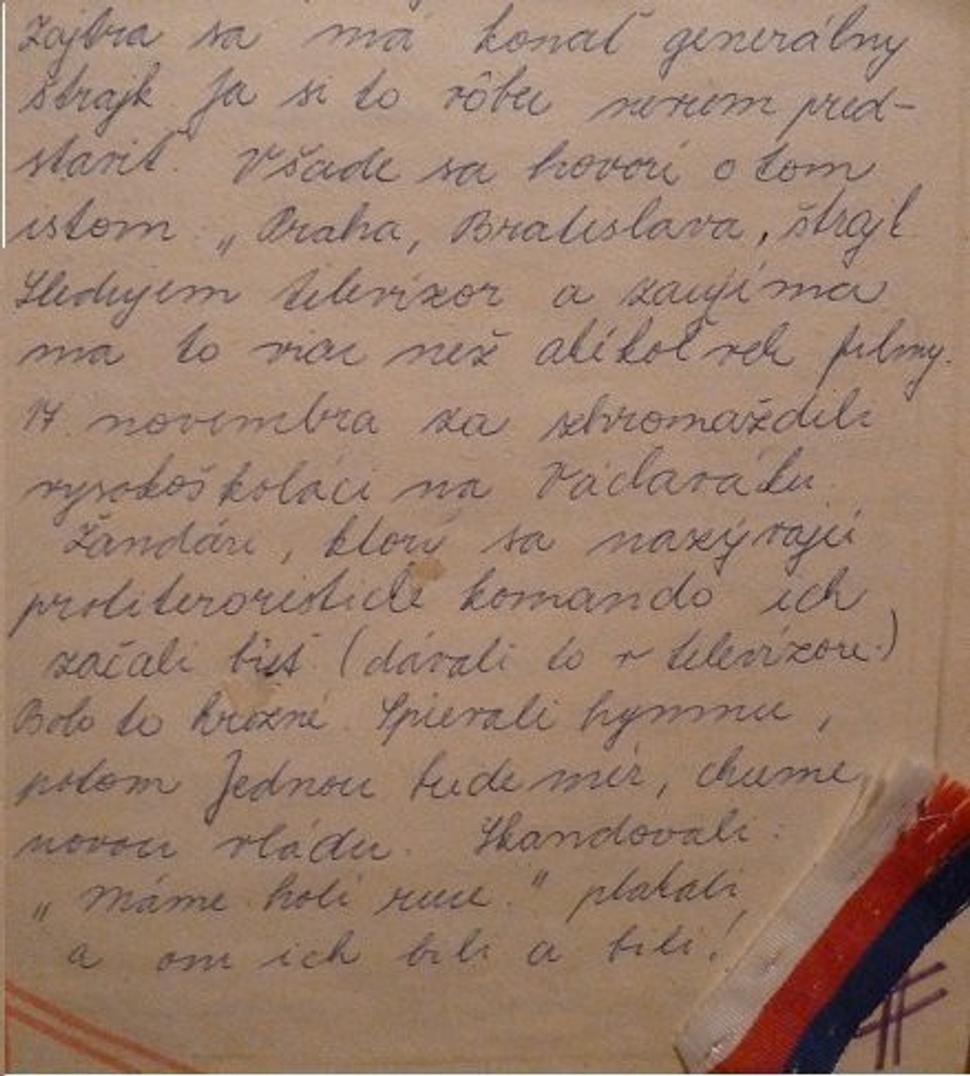 Zajtra sa má konať generálny
štrajk. Ja si to vôbec neviem pred-
staviť. Všade sa hovorí o tom
istom „Praha, Bratislava, štrajk
Sledujem televízor a zaujíma
ma to viac než akékoľvek filmy.
17. novembra sa zhromaždili
vysokoškoláci na Václaváku.
Žandári, ktorí sa nazývajú
protiteroristické komando ich
začali biť (dávali to v televízore.)
Bolo to hrozné. Spievali hymnu,
potom Jednou bude mír, chceme
novou vládu. Skandovali:
„Máme holé ruce." plakali
a oni ich bili a bili!